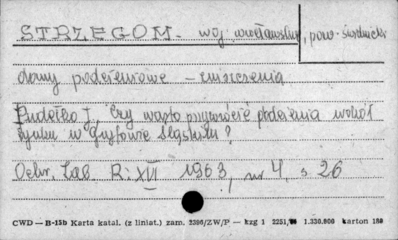 STRZEGOM - woj. wrocławskie, pow. świdnicki
domy podcieniowe - zniszczenia
Pudełko J., Czy warto przywrócić podcienia wokół
rynku w Gryfowie Śląskim?
Ochr. Zab. R. XVI 1963, nr 4, s 26
CWD — B-15b Karta katal. (z liniat.) zam. 2396/ZW/P — kzg 1 2251, 1.330.000 karton 180